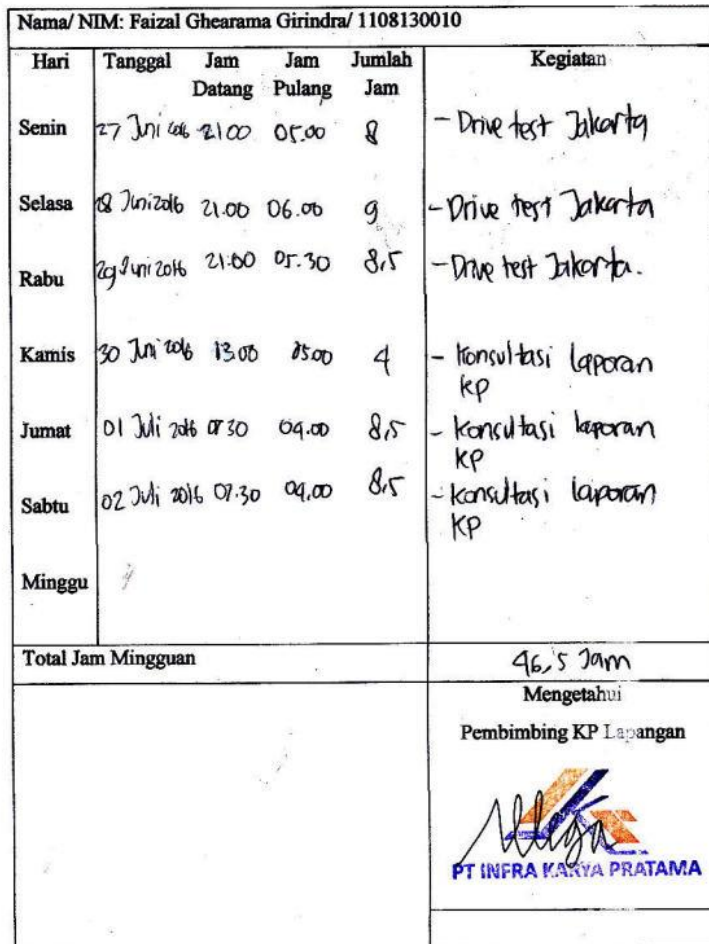 Nama/ NIM: Faizal Ghearama Girindra/ 1108130010
Hari Tanggal Jam Datang Jam Pulang Jumlah Jam Kegiatan
Senin 27 Juni 2016 21.00 05.00 8 - Drive test Jakarta
Selasa 28 Juni 2016 21.00 06.00 9 - Drive test Jakarta
Rabu 29 Juni 2016 21.00 05.30 8,5 - Drive test Jakarta.
Kamis 30 Juni 2016 13.00 4 - Konsultasi laporan
KP
Jumat 01 Juli 2016 07 30 04.00 8,5 - Konsultasi laporan
KP
Sabtu 02 Juli 2016 07.30 04.00 8,5 - Konsultasi laporan
KP
Minggu
Total Jam Mingguan 46,5 Jam
Mengetahui
Pembimbing KP Lapangan
PT INFRA KARYA PRATAMA